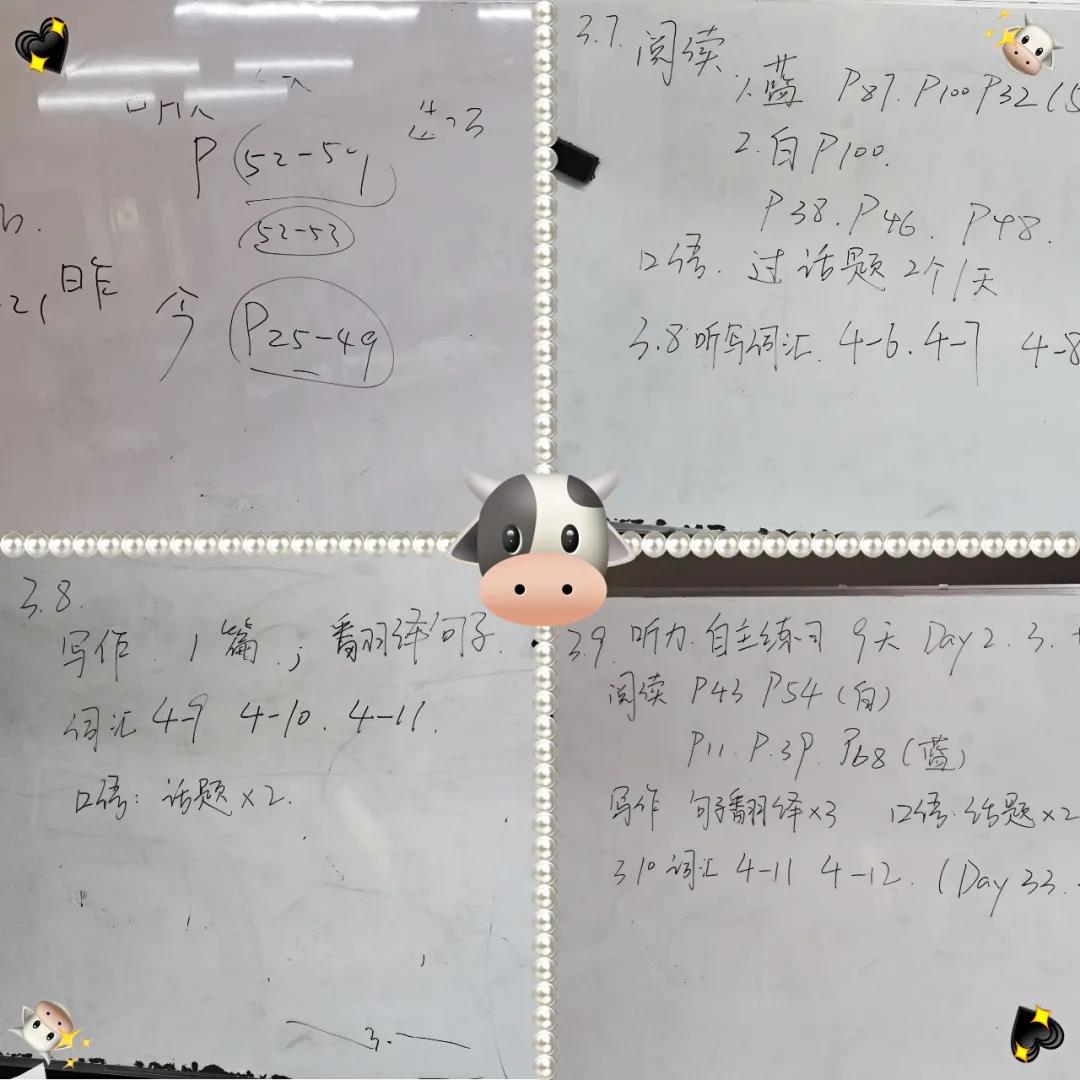 P (52-54)
(52-53)
昨
今 (P25-49)
3.7. 阅读
1. 蓝 P87. P100 P32 (5
2. 白 P100.
P38. P46. P48.
口语. 过话题 2个/天
3.8 听写词汇. 4-6. 4-7 4-8
3.8.
写作. 1篇; 翻译句子.
词汇 4-9 4-10. 4-11.
口语: 话题×2.
3.
3.9. 听力. 自主练习 9天 Day 2. 3.
阅读 P43 P54 (白)
P11. P.39. P68 (蓝)
写作 句子翻译×3 口语. 话题×2
3.10 词汇 4-11 4-12. (Day 33.